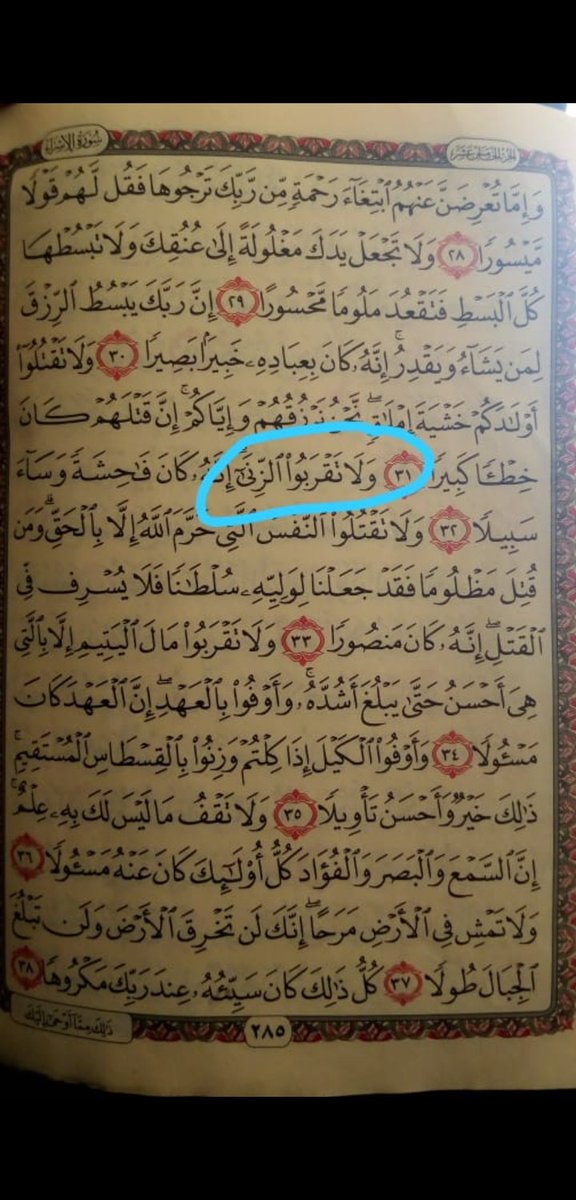 سُورَةُ الإِسْرَاءِ
الجزء الخامس عشر
وَإِمَّا تُعْرِضَنَّ عَنْهُمُ ٱبْتِغَآءَ رَحْمَةٍ مِّن رَّبِّكَ تَرْجُوهَا فَقُل لَّهُمْ قَوْلًا
مَّيْسُورًا ٢٨ وَلَا تَجْعَلْ يَدَكَ مَغْلُولَةً إِلَىٰ عُنُقِكَ وَلَا تَبْسُطْهَا
كُلَّ ٱلْبَسْطِ فَتَقْعُدَ مَلُومًا مَّحْسُورًا ٢٩ إِنَّ رَبَّكَ يَبْسُطُ ٱلرِّزْقَ
لِمَن يَشَآءُ وَيَقْدِرُ ۚ إِنَّهُۥ كَانَ بِعِبَادِهِۦ خَبِيرًۢا بَصِيرًا ٣٠ وَلَا تَقْتُلُوٓا۟
أَوْلَٰدَكُمْ خَشْيَةَ إِمْلَٰقٍ ۖ نَّحْنُ نَرْزُقُهُمْ وَإِيَّاكُمْ ۚ إِنَّ قَتْلَهُمْ كَانَ
خِطْـًٔا كَبِيرًا ٣١ وَلَا تَقْرَبُوا۟ ٱلزِّنَىٰٓ ۖ إِنَّهُۥ كَانَ فَٰحِشَةً وَسَآءَ
سَبِيلًا ٣٢ وَلَا تَقْتُلُوا۟ ٱلنَّفْسَ ٱلَّتِى حَرَّمَ ٱللَّهُ إِلَّا بِٱلْحَقِّ ۗ وَمَن
قُتِلَ مَظْلُومًا فَقَدْ جَعَلْنَا لِوَلِيِّهِۦ سُلْطَٰنًا فَلَا يُسْرِف فِّى
ٱلْقَتْلِ ۖ إِنَّهُۥ كَانَ مَنصُورًا ٣٣ وَلَا تَقْرَبُوا۟ مَالَ ٱلْيَتِيمِ إِلَّا بِٱلَّتِى
هِىَ أَحْسَنُ حَتَّىٰ يَبْلُغَ أَشُدَّهُۥ ۚ وَأَوْفُوا۟ بِٱلْعَهْدِ ۖ إِنَّ ٱلْعَهْدَ كَانَ
مَسْـُٔولًا ٣٤ وَأَوْفُوا۟ ٱلْكَيْلَ إِذَا كِلْتُمْ وَزِنُوا۟ بِٱلْقِسْطَاسِ ٱلْمُسْتَقِيمِ ۚ
ذَٰلِكَ خَيْرٌ وَأَحْسَنُ تَأْوِيلًا ٣٥ وَلَا تَقْفُ مَا لَيْسَ لَكَ بِهِۦ عِلْمٌ ۚ
إِنَّ ٱلسَّمْعَ وَٱلْبَصَرَ وَٱلْفُؤَادَ كُلُّ أُو۟لَٰٓئِكَ كَانَ عَنْهُ مَسْـُٔولًا ٣٦
وَلَا تَمْشِ فِى ٱلْأَرْضِ مَرَحًا ۖ إِنَّكَ لَن تَخْرِقَ ٱلْأَرْضَ وَلَن تَبْلُغَ
ٱلْجِبَالَ طُولًا ٣٧ كُلُّ ذَٰلِكَ كَانَ سَيِّئُهُۥ عِندَ رَبِّكَ مَكْرُوهًا ٣٨
٢٨٥
ذَٰلِكَ مِمَّآ أَوْحَىٰٓ إِلَيْكَ